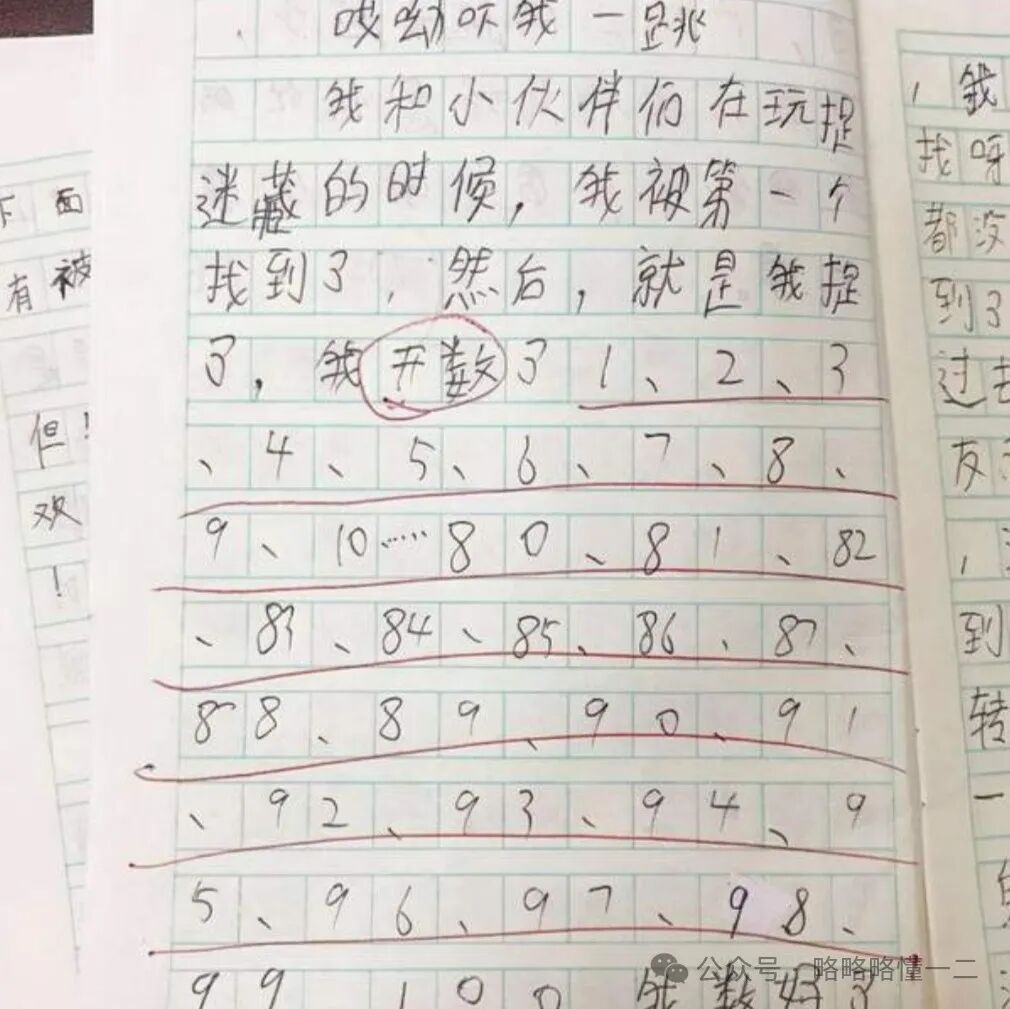 哎呦吓我一跳
我和小伙伴们在玩捉
迷藏的时候，我被第一个
找到了，然后，就是我捉
了，我开数了1、2、3
、4、5、6、7、8、
9、10……80、81、82
、83、84、85、86、87、
88、89、90、91
、92、93、94、9
5、96、97、98、
99、100 我数好了
下面
有被
但！
欢
！
，我
找呀
都没
到了
过去
友
，
到
转
一
公众号 略略略懂一二